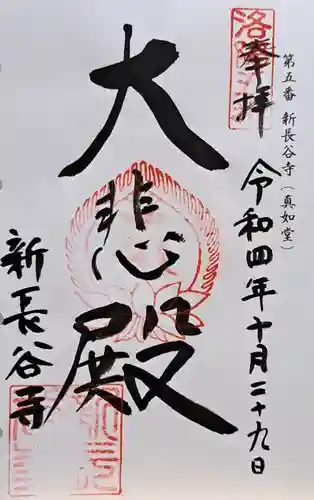 第五番 新長谷寺（真如堂）
奉拝
令和四年十月二十九日
大悲殿
新長谷寺